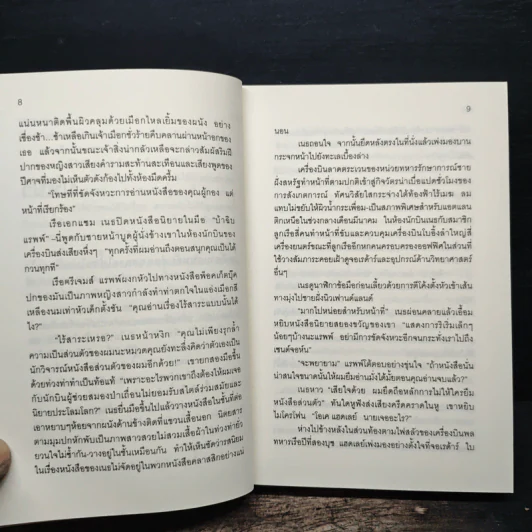 8
แน่นหนาติดพื้นผิวคลุมด้วยเมือกไหลเยิ้มของผนัง อย่าง
เชื่องช้า...ช้าเหลือเกินเจ้าเมือกชั่วร้ายคืบคลานผ่านหน้าอกของ
เธอ แล้วจากนั้นขณะเจ้าสิ่งน่ากลัวเหลือจะกล่าวสัมผัสริมฝี
ปากของหญิงสาวเสียงคำรามสะท้านสะเทือนและเสียงพูดของ
ปีศาจที่มองไม่เห็นตัวดังก้องไปทั่วห้องมืดครึ้ม
"โทษทีที่ขัดจังหวะการอ่านหนังสือของคุณผู้กอง แต่
หน้าที่เรียกร้อง"
เรือเอกแซม เนธปิดหนังสือนิยายในมือ "บ้าฉิบ
แรพพ์" -นี่พูดกับชายหน้าบูดผู้นั่งข้างเขาในห้องนักบินของ
เครื่องบินส่งเสียงหึ่งๆ "ทุกครั้งที่ผมอ่านถึงตอนสนุกคุณเป็นได้
กวนทุกที"
เรือตรีเจมส์ แรพพ์ผงกหัวไปทางหนังสือพ็อคเก็ตบุ๊ค
ปกของมันเป็นภาพหญิงสาวกำลังทำท่าตกใจในแอ่งเมือกสี
เหลืองนมเท่าหัวเด็กตั้งชัน "คุณอ่านเรื่องไร้สาระแบบนั้นได้
ไง?"
"ไร้สาระเหรอ?" เนธหน้าหงิก "คุณไม่เพียงรุกล้ำ
ความเป็นส่วนตัวของผมนะหมวดคุณยังทะลึ่งคิดว่าตัวเองเป็น
นักวิจารณ์หนังสือส่วนตัวของผมอีกด้วย!" เขายกสองมือขึ้น
ด้วยท่วงท่าทำเป็นท้อแท้ "เพราะอะไรพวกเขาถึงต้องให้ผมเจอ
กับนักบินผู้ช่วยสมองป่าเถื่อนไม่ยอมรับสไตล์ร่วมสมัยและ
นิยายประโลมโลก?" เนธยื่นมือขึ้นไปแล้ววางหนังสือในชั้นที่ต่อ
เอาหยาบๆห้อยจากผนังด้านข้างติดที่แขวนเสื้อนอก นิตยสาร
ตามมุมปกหักพับเป็นภาพสาวสวยไม่สวมเสื้อผ้าในท่วงท่ายั่ว
ยวนใจไม่ซ้ำกัน-วางอยู่ในชั้นเหมือนกัน ทำให้เห็นชัดว่ารสนิยม
ในเรื่องหนังสือของเนธไม่จัดอยู่ในพวกหนังสือคลาสสิกอย่างแน่
9
นอน
เนธถอนใจ จากนั้นยืดหลังตรงในที่นั่งแล้วเพ่งมองบาน
กระจกหน้าไปยังทะเลเบื้องล่าง
เครื่องบินลาดตระเวนของหน่วยทหารรักษาการณ์ชาย
ฝั่งสหรัฐทำหน้าที่ตามปกติเข้าสู่กิจวัตรน่าเบื่อแปดชั่วโมงของ
การสังเกตการณ์ ทัศนวิสัยไกลสุดตา ท้องฟ้าสีฟ้าใสไร้เมฆ ลม
แทบไม่ขยับให้ผิวน้ำกระเพื่อม-เป็นสภาพพิเศษสำหรับแอตแลน
ติกเหนือในช่วงกลางเดือนมีนาคม ในห้องนักบินเนธกับสมาชิก
ลูกเรือสี่คนทำหน้าที่ขับและควบคุมเครื่องบินโบอิ้งลำใหญ่สี่
เครื่องยนต์ขณะที่ลูกเรืออีกหกคนครอบครองออฟฟิศในส่วนที่
ใช้วางสัมภาระคอยเฝ้าดูจอเรด้าร์และอุปกรณ์ด้านวิทยาศาสตร์
อื่นๆ
เนธดูนาฬิกาข้อมือก่อนเลี้ยวด้วยการตีโค้งตั้งหัวเข้าเส้น
ทางมุ่งไปชายฝั่งนิวเฟานด์แลนด์
"มากไปหน่อยสำหรับหน้าที่" เนธผ่อนคลายแล้วเอื้อม
หยิบหนังสือนิยายสยองขวัญของเขา "แสดงการริเริ่มเล็กๆ
น้อยๆบ้างนะแรพพ์ อย่ามีการขัดจังหวะอีกจนกระทั่งเราไปถึง
เซนต์จอห์น"
"จะพยายาม" แรพพ์โต้ตอบอย่างขุ่นใจ "ถ้าหนังสือนั่น
น่าสนใจขนาดนั้นให้ผมยืมอ่านมั่งได้มั้ยตอนคุณอ่านจบแล้ว?"
เนธหาว "เสียใจด้วย ผมยึดถือหลักการไม่ให้ใครยืม
หนังสือส่วนตัว" ทันใดหูฟังส่งเสียงครืดคราดในหู เขาหยิบ
ไมโครโฟน "โอเค แฮดเลย์ นายเจออะไร?"
ห่างไปข้างหลังในส่วนท้องตามไฟสลัวของเครื่องบินพล
ทหารเรือปีที่สองบุช แฮดเลย์เพ่งมองอย่างตั้งใจที่จอเรด้าร์ ใบ